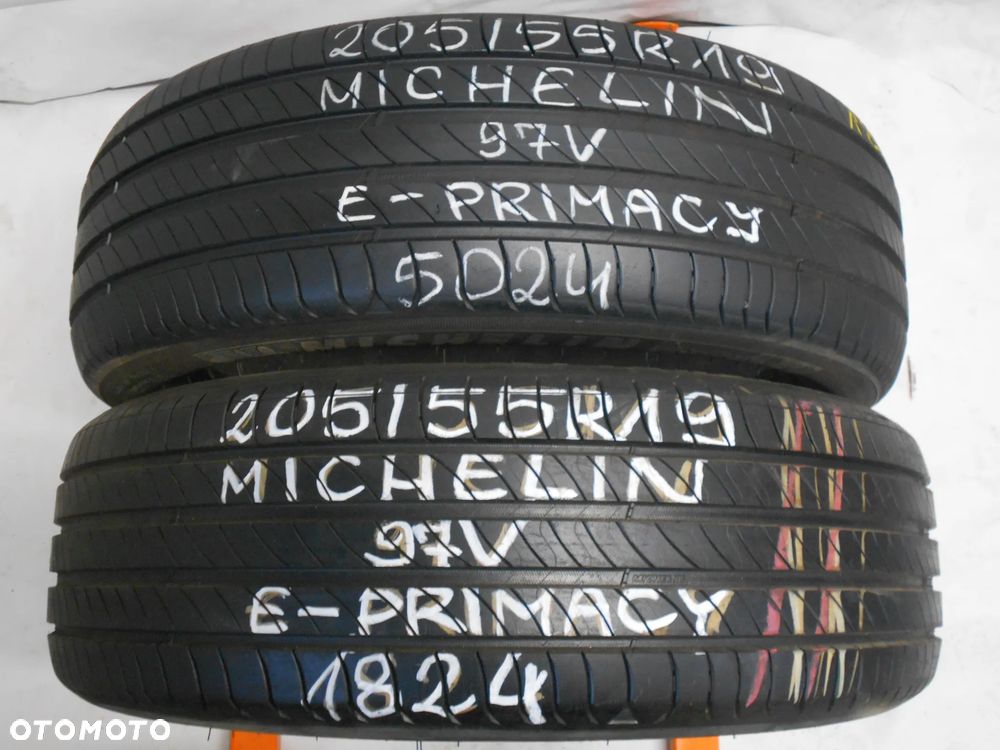 205/55R19
MICHELIN
97V
E-PRIMACY
5024
MICHELIN
205/55R19
MICHELIN
97V
E-PRIMACY
1824
OTOMOTO